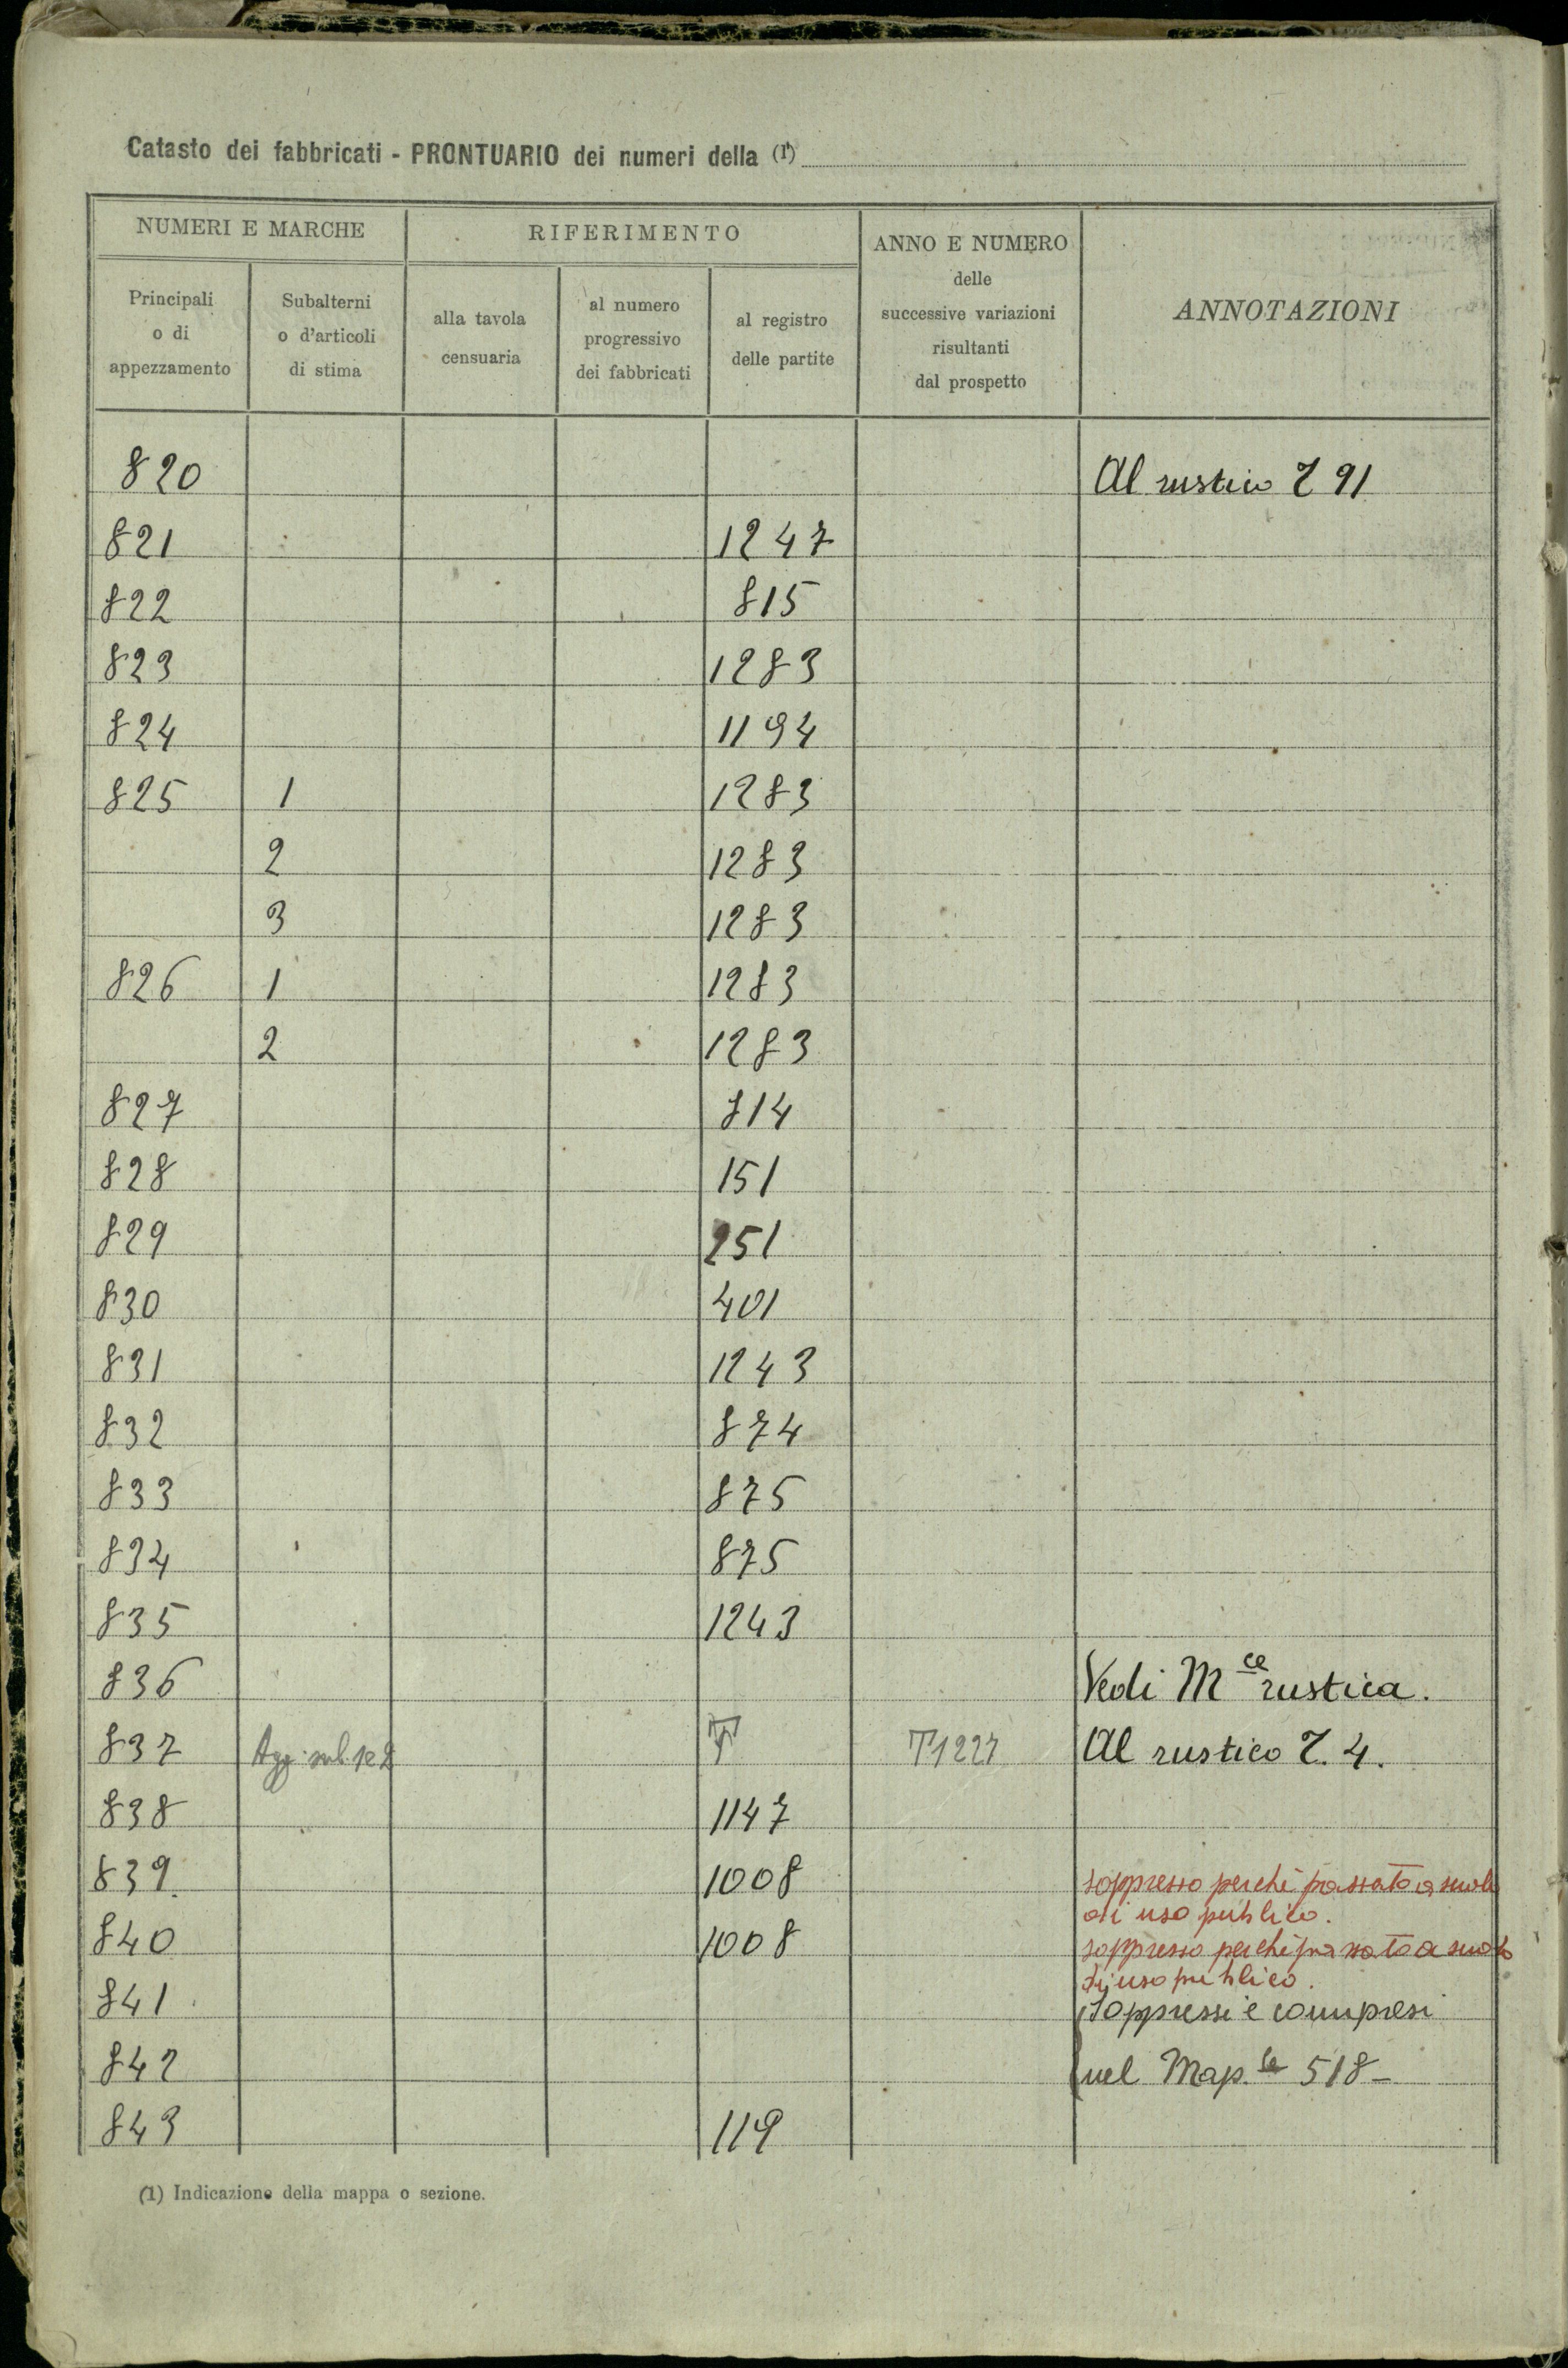 Catasto dei fabbricati - PRONTUARIO dei numeri della (1)
NUMERI E MARCHE
RIFERIMENTO
ANNO E NUMERO
delle
successive variazioni
risultanti
dal prospetto
ANNOTAZIONI
Principali
o di
appezzamento
Subalterni
o d'articoli
di stima
alla tavola
censuaria
al numero
progressivo
dei fabbricati
al registro
delle partite
820 Al rustico 91
821 1247
822 815
823 1283
824 1194
825 1 1283
2 1283
3 1283
826 1 1283
2 1283
827 814
828 151
829 251
830 401
831 1243
832 874
833 875
834 875
835 1243
836 Vedi M ce rustica.
837 Agg. sub. 1 e 2 T T1227 Al rustico 4.
838 1147
839 1008 soppresso perchè passato a suolo
di uso publico.
840 1008 soppresso perchè passato a suolo
di uso publico.
841 Soppressi e compresi
842 nel Map.le 518-
843 119
(1) Indicazione della mappa o sezione.